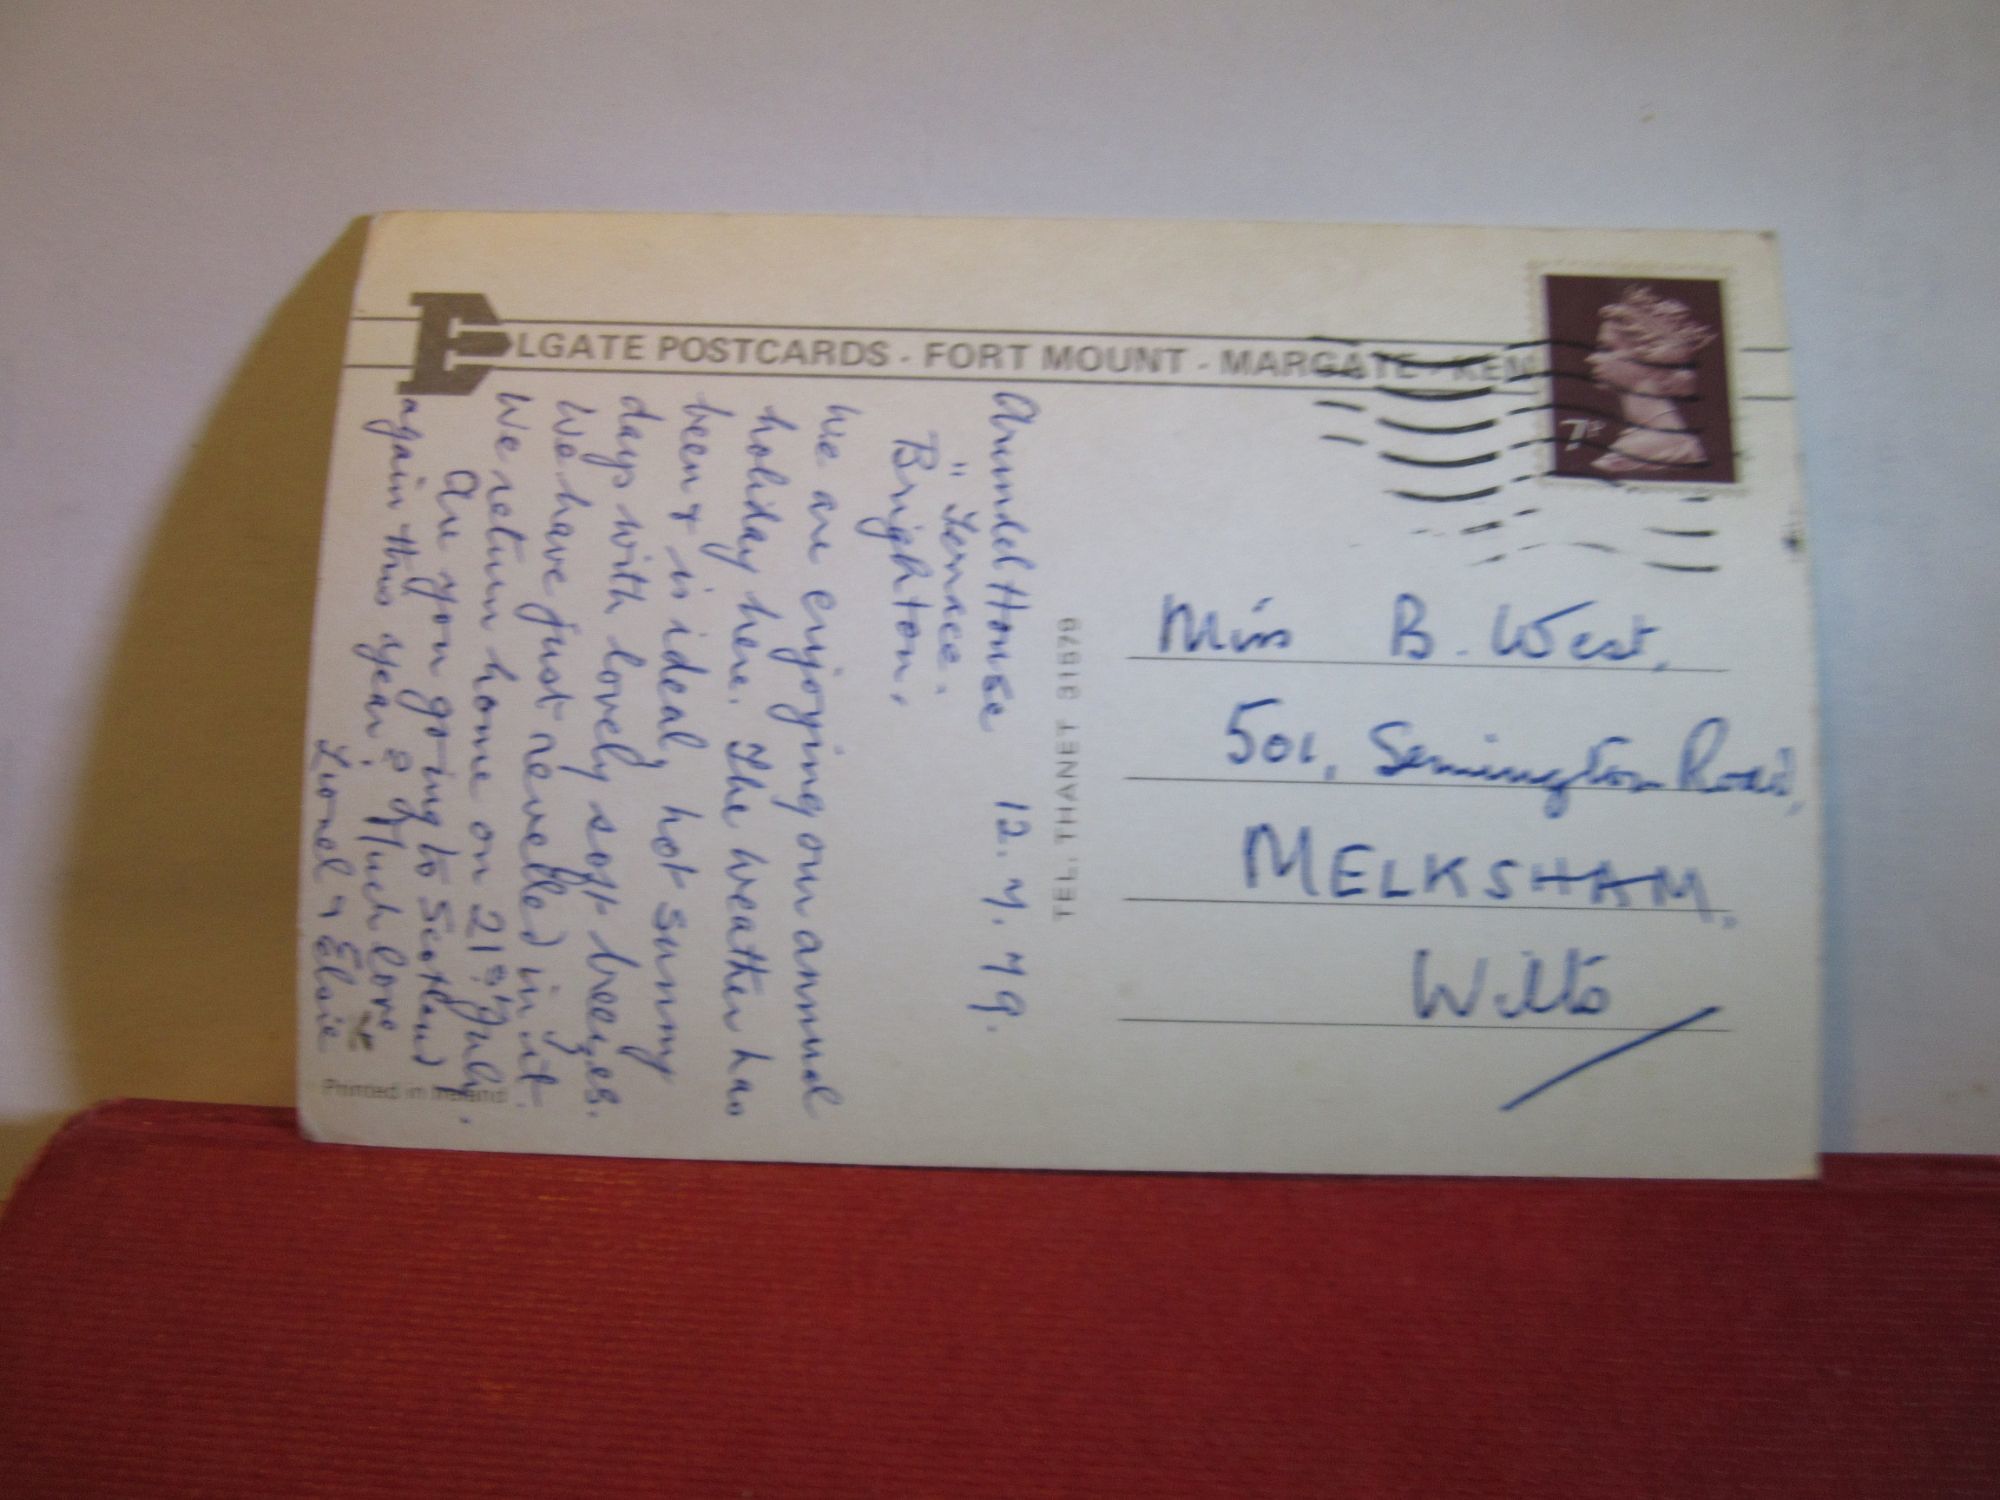 ELGATE POSTCARDS - FORT MOUNT - MARGATE - KEN
7P
Arundel House 12.7.79.
" Terrace.
Brighton,
We are enjoying our annual
holiday here. The weather has
been & is ideal, hot sunny
days with lovely soft breezes.
We have just revelled in it.
We return home on 21st July.
Are you going to Scotland
again this year? Much love
Lionel & Elsie
TEL. THANET 91679
Miss B. West,
501, Semington Road,
MELKSHAM.
Wilts
Printed in Ireland